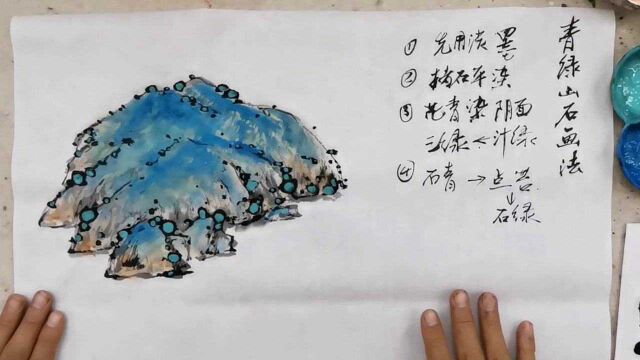 青绿山石画法
① 先用淡墨
② 赭石平染
③ 花青染阴面
三绿 ← 汁绿
④ 石青 → 点苔
↓
石绿